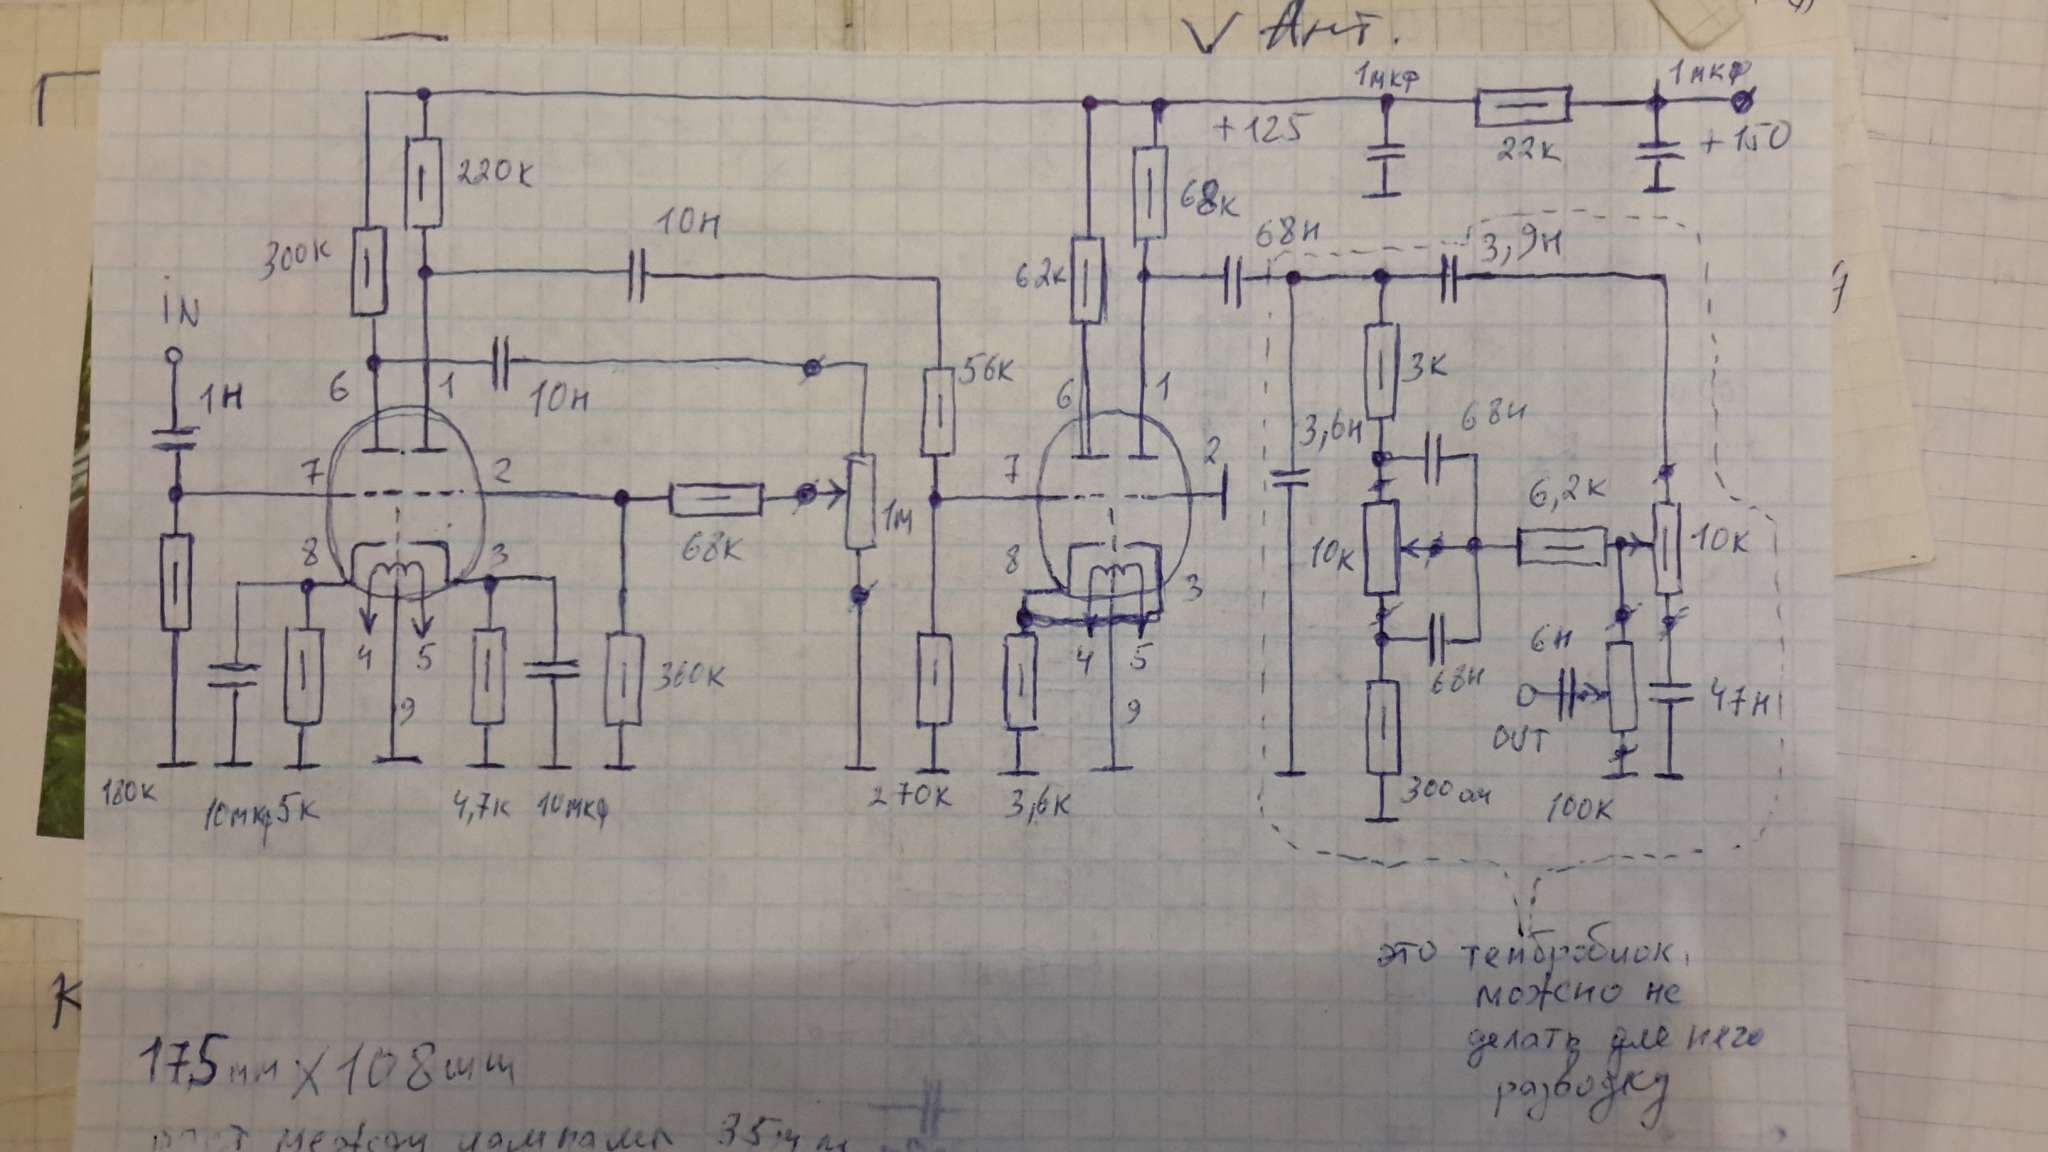 V Ант.
1мкф
1мкф
+125
22к
+150
220к
68к
10н
68н
3,9н
300к
62к
iN
3к
56к
6
1
10н
6
1
1н
68н
3,6н
2
7
2
7
6,2к
1м
68к
10к
10к
8
3
8
3
4
5
360к
4
5
6н
68н
47н
9
9
OUT
180к
10мкф
5к
4,7к
10мкф
270к
3,6к
300ом
100к
это тембраблок,
можно не
делать для него
разводку
К
175мм х 108мм
между лампами 35мм